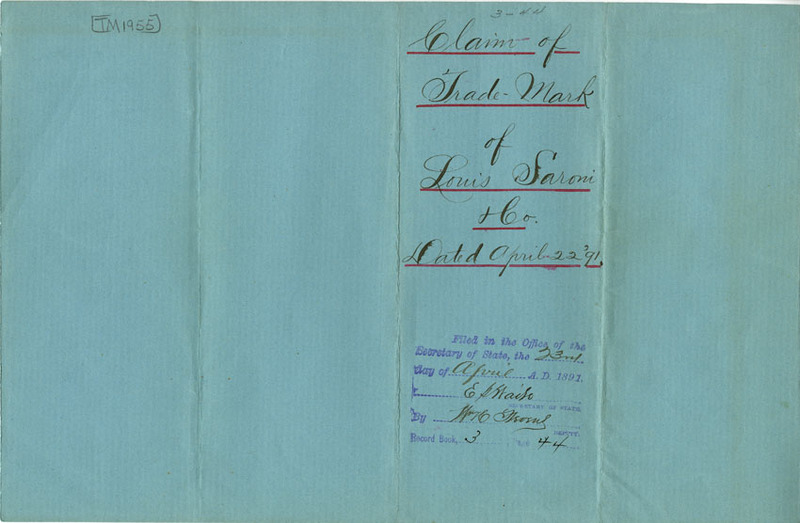 TM1955
3-44
Claim of
Trade-Mark
of
Louis Saroni
& Co.
Dated April 22'91.
Filed in the Office of the
Secretary of State, the 23rd
day of April A.D. 1891.
SECRETARY OF STATE.
By
DEPUTY.
Record Book, 3 44